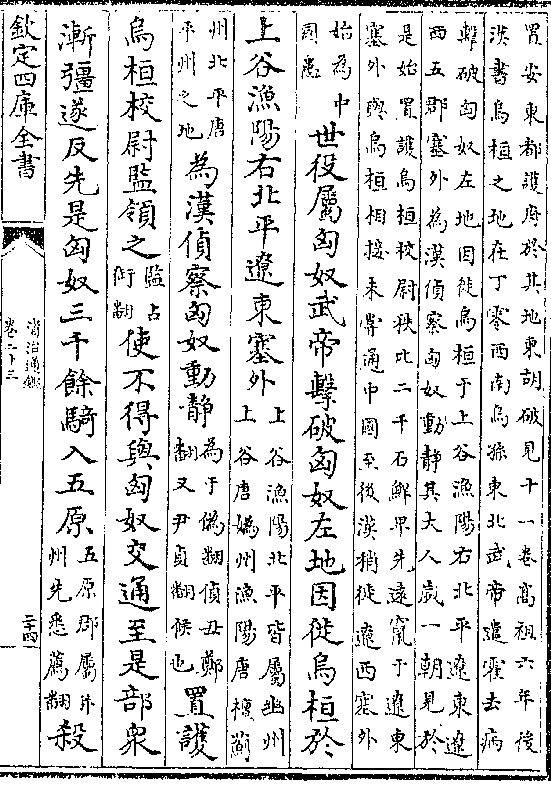 置安東都護府於其地東胡破見十一卷高祖六年後
漢書烏桓之地在丁零西南烏孫東北武帝遣霍去病
擊破匈奴左地因徙烏桓于上谷漁陽右北平遼東遼
西五郡塞外為漢偵察匈奴動靜其大人歲一朝見於
是始置護烏桓校尉秩比二千石鮮卑先遠竄于遼東
塞外與烏桓相接未嘗通中國至後漢稍徙遼西塞外
始為中
國患
世役屬匈奴武帝擊破匈奴左地因徙烏桓於
上谷漁陽右北平遼東塞外
上谷漁陽北平皆屬幽州
上谷唐媯州漁陽唐檀薊
州北平唐
平州之地
為漢偵察匈奴動靜
為于偽翻偵丑鄭
翻又尹貞翻候也
置護
烏桓校尉監領之
監占
銜翻
使不得與匈奴交通至是部衆
漸彊遂反先是匈奴三千餘騎入五原
五原郡屬并
州先悉薦翻
殺
欽定四庫全書
資治通鑑
卷二十三
二十四